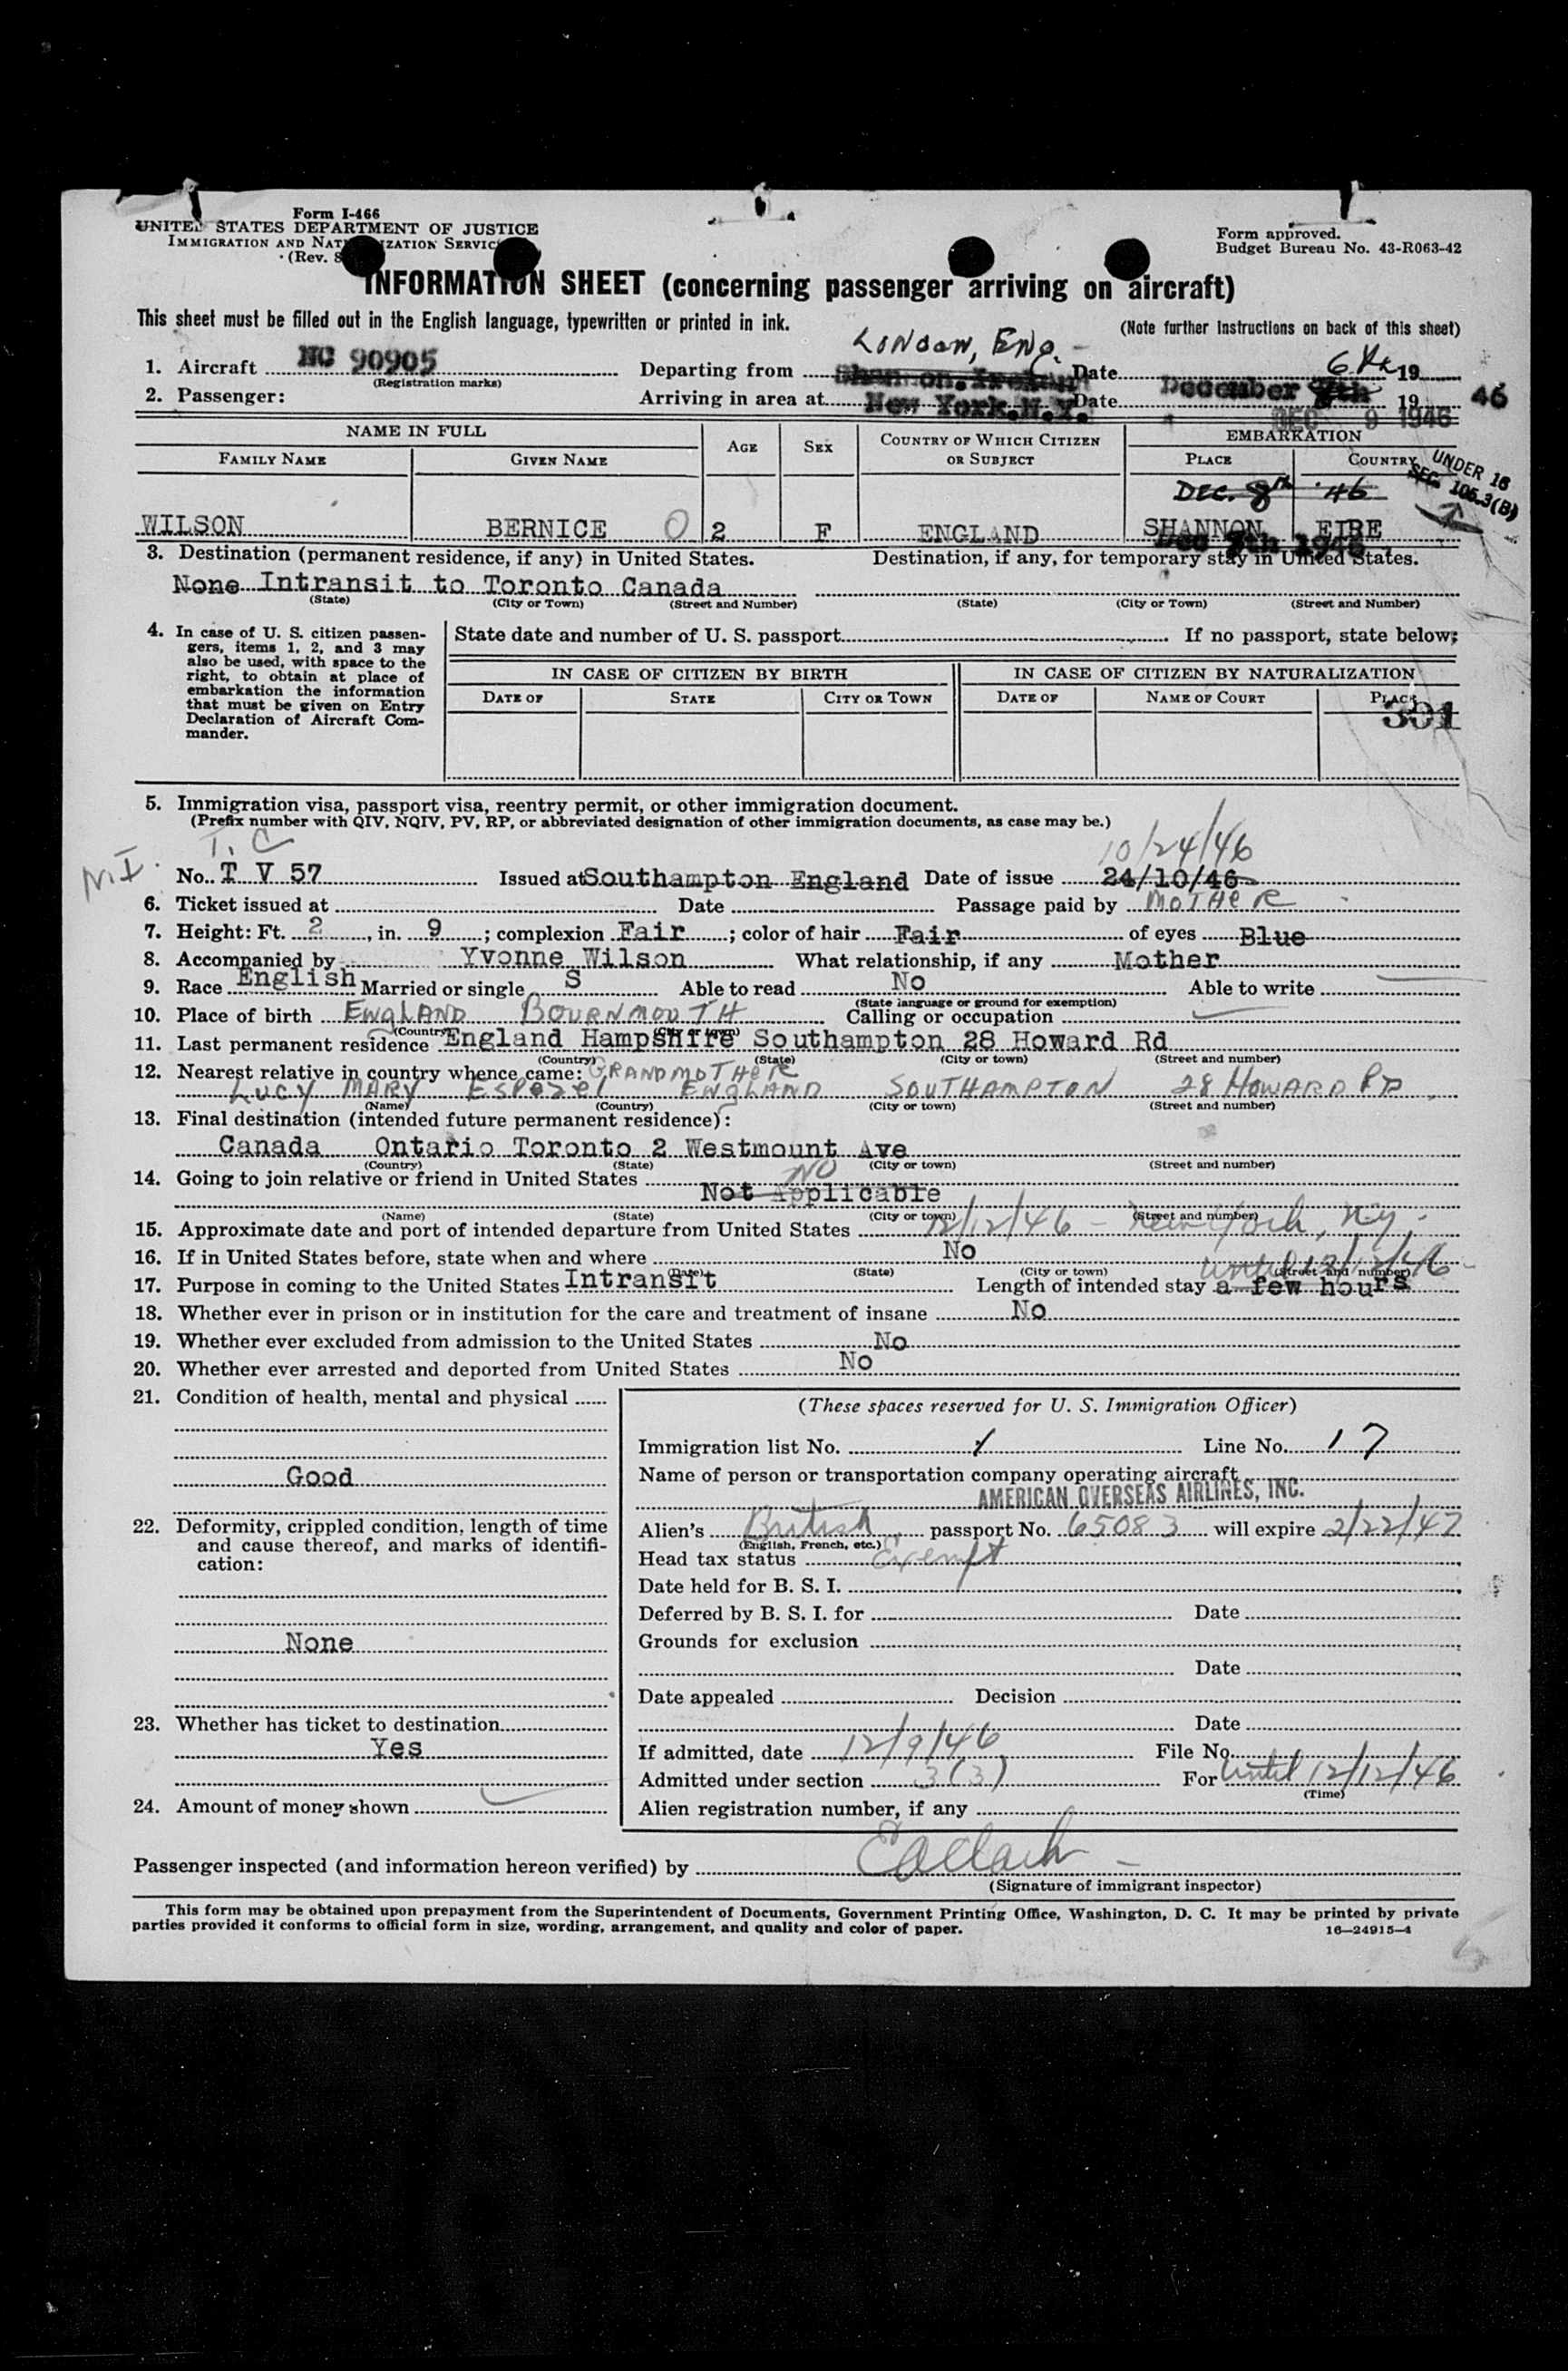 Form I-466
UNITED STATES DEPARTMENT OF JUSTICE
IMMIGRATION AND NATURALIZATION SERVICE
(Rev. 8
Form approved.
Budget Bureau No. 43-R063-42
INFORMATION SHEET (concerning passenger arriving on aircraft)
This sheet must be filled out in the English language, typewritten or printed in ink.
(Note further instructions on back of this sheet)
LONDON, ENG.
1. Aircraft NC 90905 Departing from Shannon, Ireland Date 6th 19
(Registration marks)
2. Passenger: Arriving in area at New York, N.Y. Date December 19 46
DEC 9 1946
NAME IN FULL AGE SEX COUNTRY OF WHICH CITIZEN OR SUBJECT EMBARKATION
FAMILY NAME GIVEN NAME PLACE COUNTRY
UNDER 16
SEC. 105.3(B)
DEC. 8th '46
WILSON BERNICE 0 2 F ENGLAND SHANNON EIRE
3. Destination (permanent residence, if any) in United States. Destination, if any, for temporary stay in United States.
None Intransit to Toronto Canada
(State) (City or Town) (Street and Number) (State) (City or Town) (Street and Number)
4. In case of U. S. citizen passengers, items 1, 2, and 3 may also be used, with space to the right, to obtain at place of embarkation the information that must be given on Entry Declaration of Aircraft Commander.
State date and number of U. S. passport If no passport, state below:
IN CASE OF CITIZEN BY BIRTH IN CASE OF CITIZEN BY NATURALIZATION
DATE OF STATE CITY OR TOWN DATE OF NAME OF COURT PLACE
5. Immigration visa, passport visa, reentry permit, or other immigration document.
(Prefix number with QIV, NQIV, PV, RP, or abbreviated designation of other immigration documents, as case may be.)
T. C 10/24/46
N.I. No. T V 57 Issued at Southampton England Date of issue 24/10/46
6. Ticket issued at Date Passage paid by MOTHER
7. Height: Ft. 2, in. 9; complexion Fair; color of hair Fair of eyes Blue
8. Accompanied by Yvonne Wilson What relationship, if any Mother
9. Race English Married or single S Able to read No Able to write
(State language or ground for exemption)
10. Place of birth ENGLAND BOURNMOUTH Calling or occupation
(Country) (City or town)
11. Last permanent residence England Hampshire Southampton 28 Howard Rd
(Country) (State) (City or town) (Street and number)
12. Nearest relative in country whence came: GRANDMOTHER
LUCY MARY ENGLAND SOUTHAMPTON 28 HOWARD RD
(Name) (Country) (City or town) (Street and number)
13. Final destination (intended future permanent residence):
Canada Ontario Toronto 2 Westmount Ave
(Country) (State) (City or town) (Street and number)
14. Going to join relative or friend in United States NO
Not Applicable
(Name) (State) (City or town) (Street and number)
15. Approximate date and port of intended departure from United States 12/12/46 - New York, N.Y.
16. If in United States before, state when and where No
(Date) (State) (City or town) (Street and number)
until 12/12/46
17. Purpose in coming to the United States Intransit Length of intended stay a few hours
18. Whether ever in prison or in institution for the care and treatment of insane No
19. Whether ever excluded from admission to the United States No
20. Whether ever arrested and deported from United States No
21. Condition of health, mental and physical
Good
22. Deformity, crippled condition, length of time and cause thereof, and marks of identification:
None
23. Whether has ticket to destination
Yes
24. Amount of money shown
(These spaces reserved for U. S. Immigration Officer)
Immigration list No. 1 Line No. 17
Name of person or transportation company operating aircraft
AMERICAN OVERSEAS AIRLINES, INC.
Alien's British passport No. 65083 will expire 2/22/47
(English, French, etc.)
Head tax status Exempt
Date held for B. S. I.
Deferred by B. S. I. for Date
Grounds for exclusion
Date
Date appealed Decision
Date
If admitted, date 12/9/46 File No.
Admitted under section 3(3) For until 12/12/46
(Time)
Alien registration number, if any
Passenger inspected (and information hereon verified) by
(Signature of immigrant inspector)
This form may be obtained upon prepayment from the Superintendent of Documents, Government Printing Office, Washington, D. C. It may be printed by private
parties provided it conforms to official form in size, wording, arrangement, and quality and color of paper. 16—24915-4